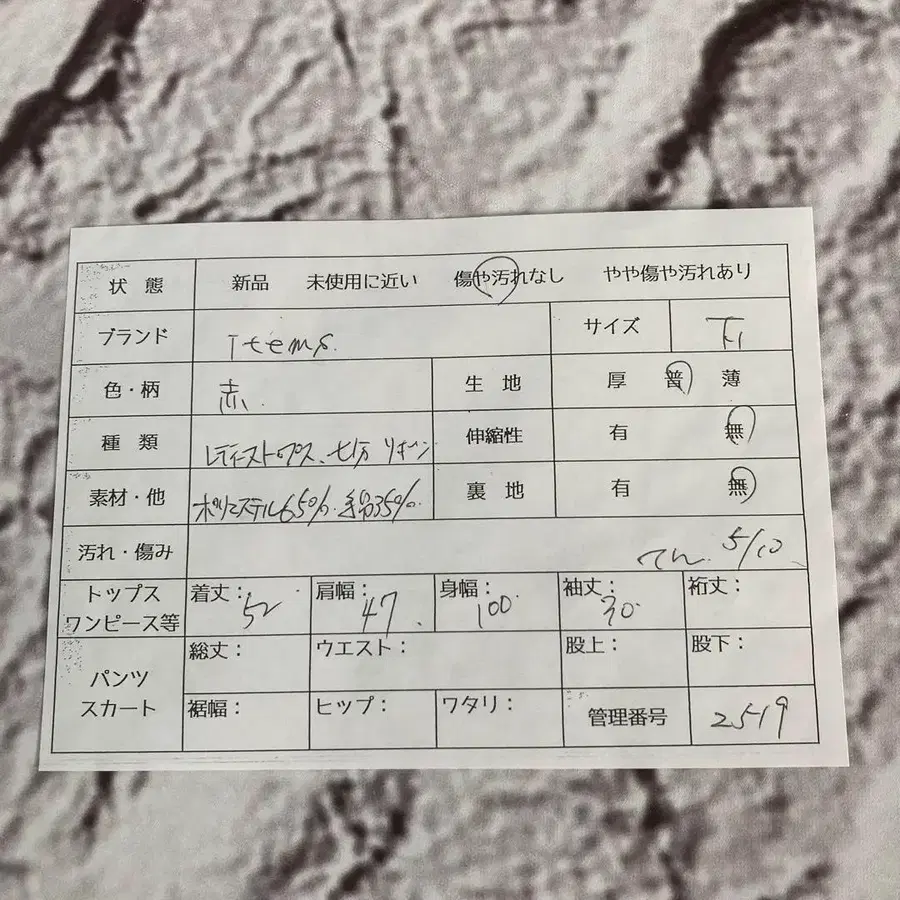 状態 新品 未使用に近い 傷や汚れなし やや傷や汚れあり
ブランド Items サイズ
色・柄 赤. 生地 厚 普 薄
種類 レディーストップス、七分 リボン 伸縮性 有 無
素材・他 ポリエステル65%. 綿35%. 裏地 有 無
汚れ・傷み 5/10
トップス ワンピース等 着丈: 52 肩幅: 47. 身幅: 100 袖丈: 30 裄丈:
パンツ スカート 総丈: ウエスト: 股上: 股下:
裾幅: ヒップ: ワタリ: 管理番号 2519